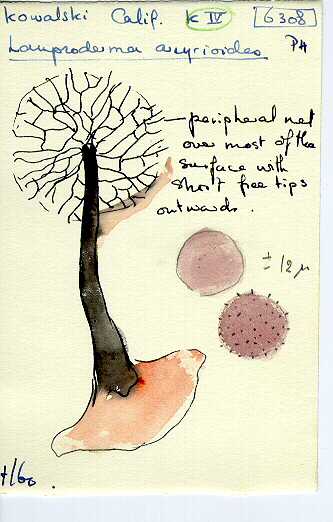 Kowalski Calif. K IV 6308
Lamproderma arcyrioides PH
peripheral net
over most of the
surface with
short free tips
outwards.
± 12 μ